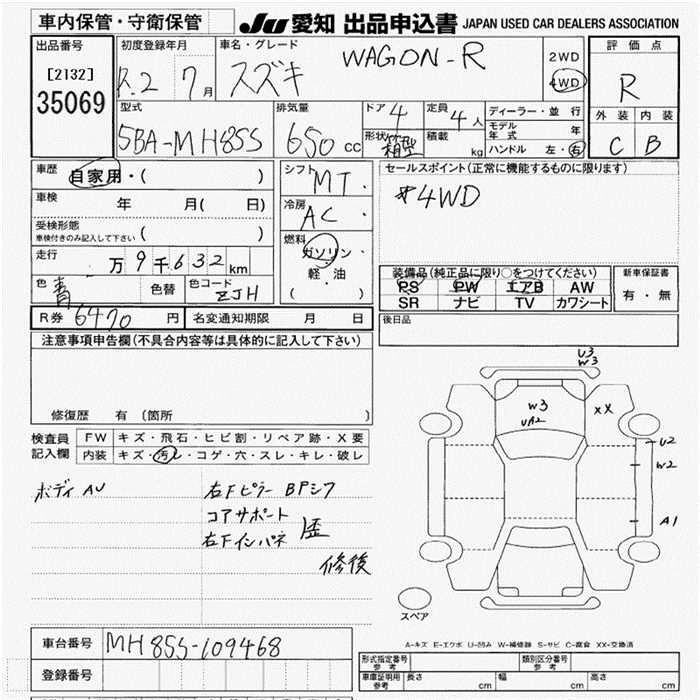 車内保管・守衛保管
JU 愛知 出品申込書 JAPAN USED CAR DEALERS ASSOCIATION
出品番号
[2132]
35069
初度登録年月
R.2 7月
車名・グレード
スズキ WAGON-R
2WD
4WD
評価点
R
外装 内装
C B
型式
5BA-MH85S
排気量
650 cc
ドア 4
形状 箱型
定員 4人
積載 kg
ディーラー・並行
モデル年式 年
ハンドル 左・右
車歴 自家用・( )
車検 年 月( 日)
受検形態
車検付きのみ記入して下さい ( )
走行 万9千632km
色 青 色替 色コード ZJH
シフト MT.
冷房 AC.
燃料
ガソリン・
軽・油
( )
セールスポイント(正常に機能するものに限ります)
#4WD
装備品(純正品に限り○をつけてください)
PS PW エアB AW
SR ナビ TV カワシート
新車保証書
有・無
R券 6470 円 名変通知期限 月 日
後日品
注意事項申告欄(不具合内容等は具体的に記入して下さい)
修復歴 有 (箇所 )
検査員
記入欄
FW キズ・飛石・ヒビ割・リペア跡・X要
内装 キズ・汚レ・コゲ・穴・スレ・キレ・破レ
ボディ AU
右Fピラー BPシワ
コアサポート
右Fインパネ 歪
修後
U3
W3
W3
UA2
XX
U2
W2
A1
スペア
A-キズ E-エクボ U-凹み W-補修跡 S-サビ C-腐食 XX-交換済
車台番号 MH85S-109468
登録番号
形式指定番号
参考
類別区分番号
参考
車庫証明用
参考
長さ cm 幅 cm 高さ cm